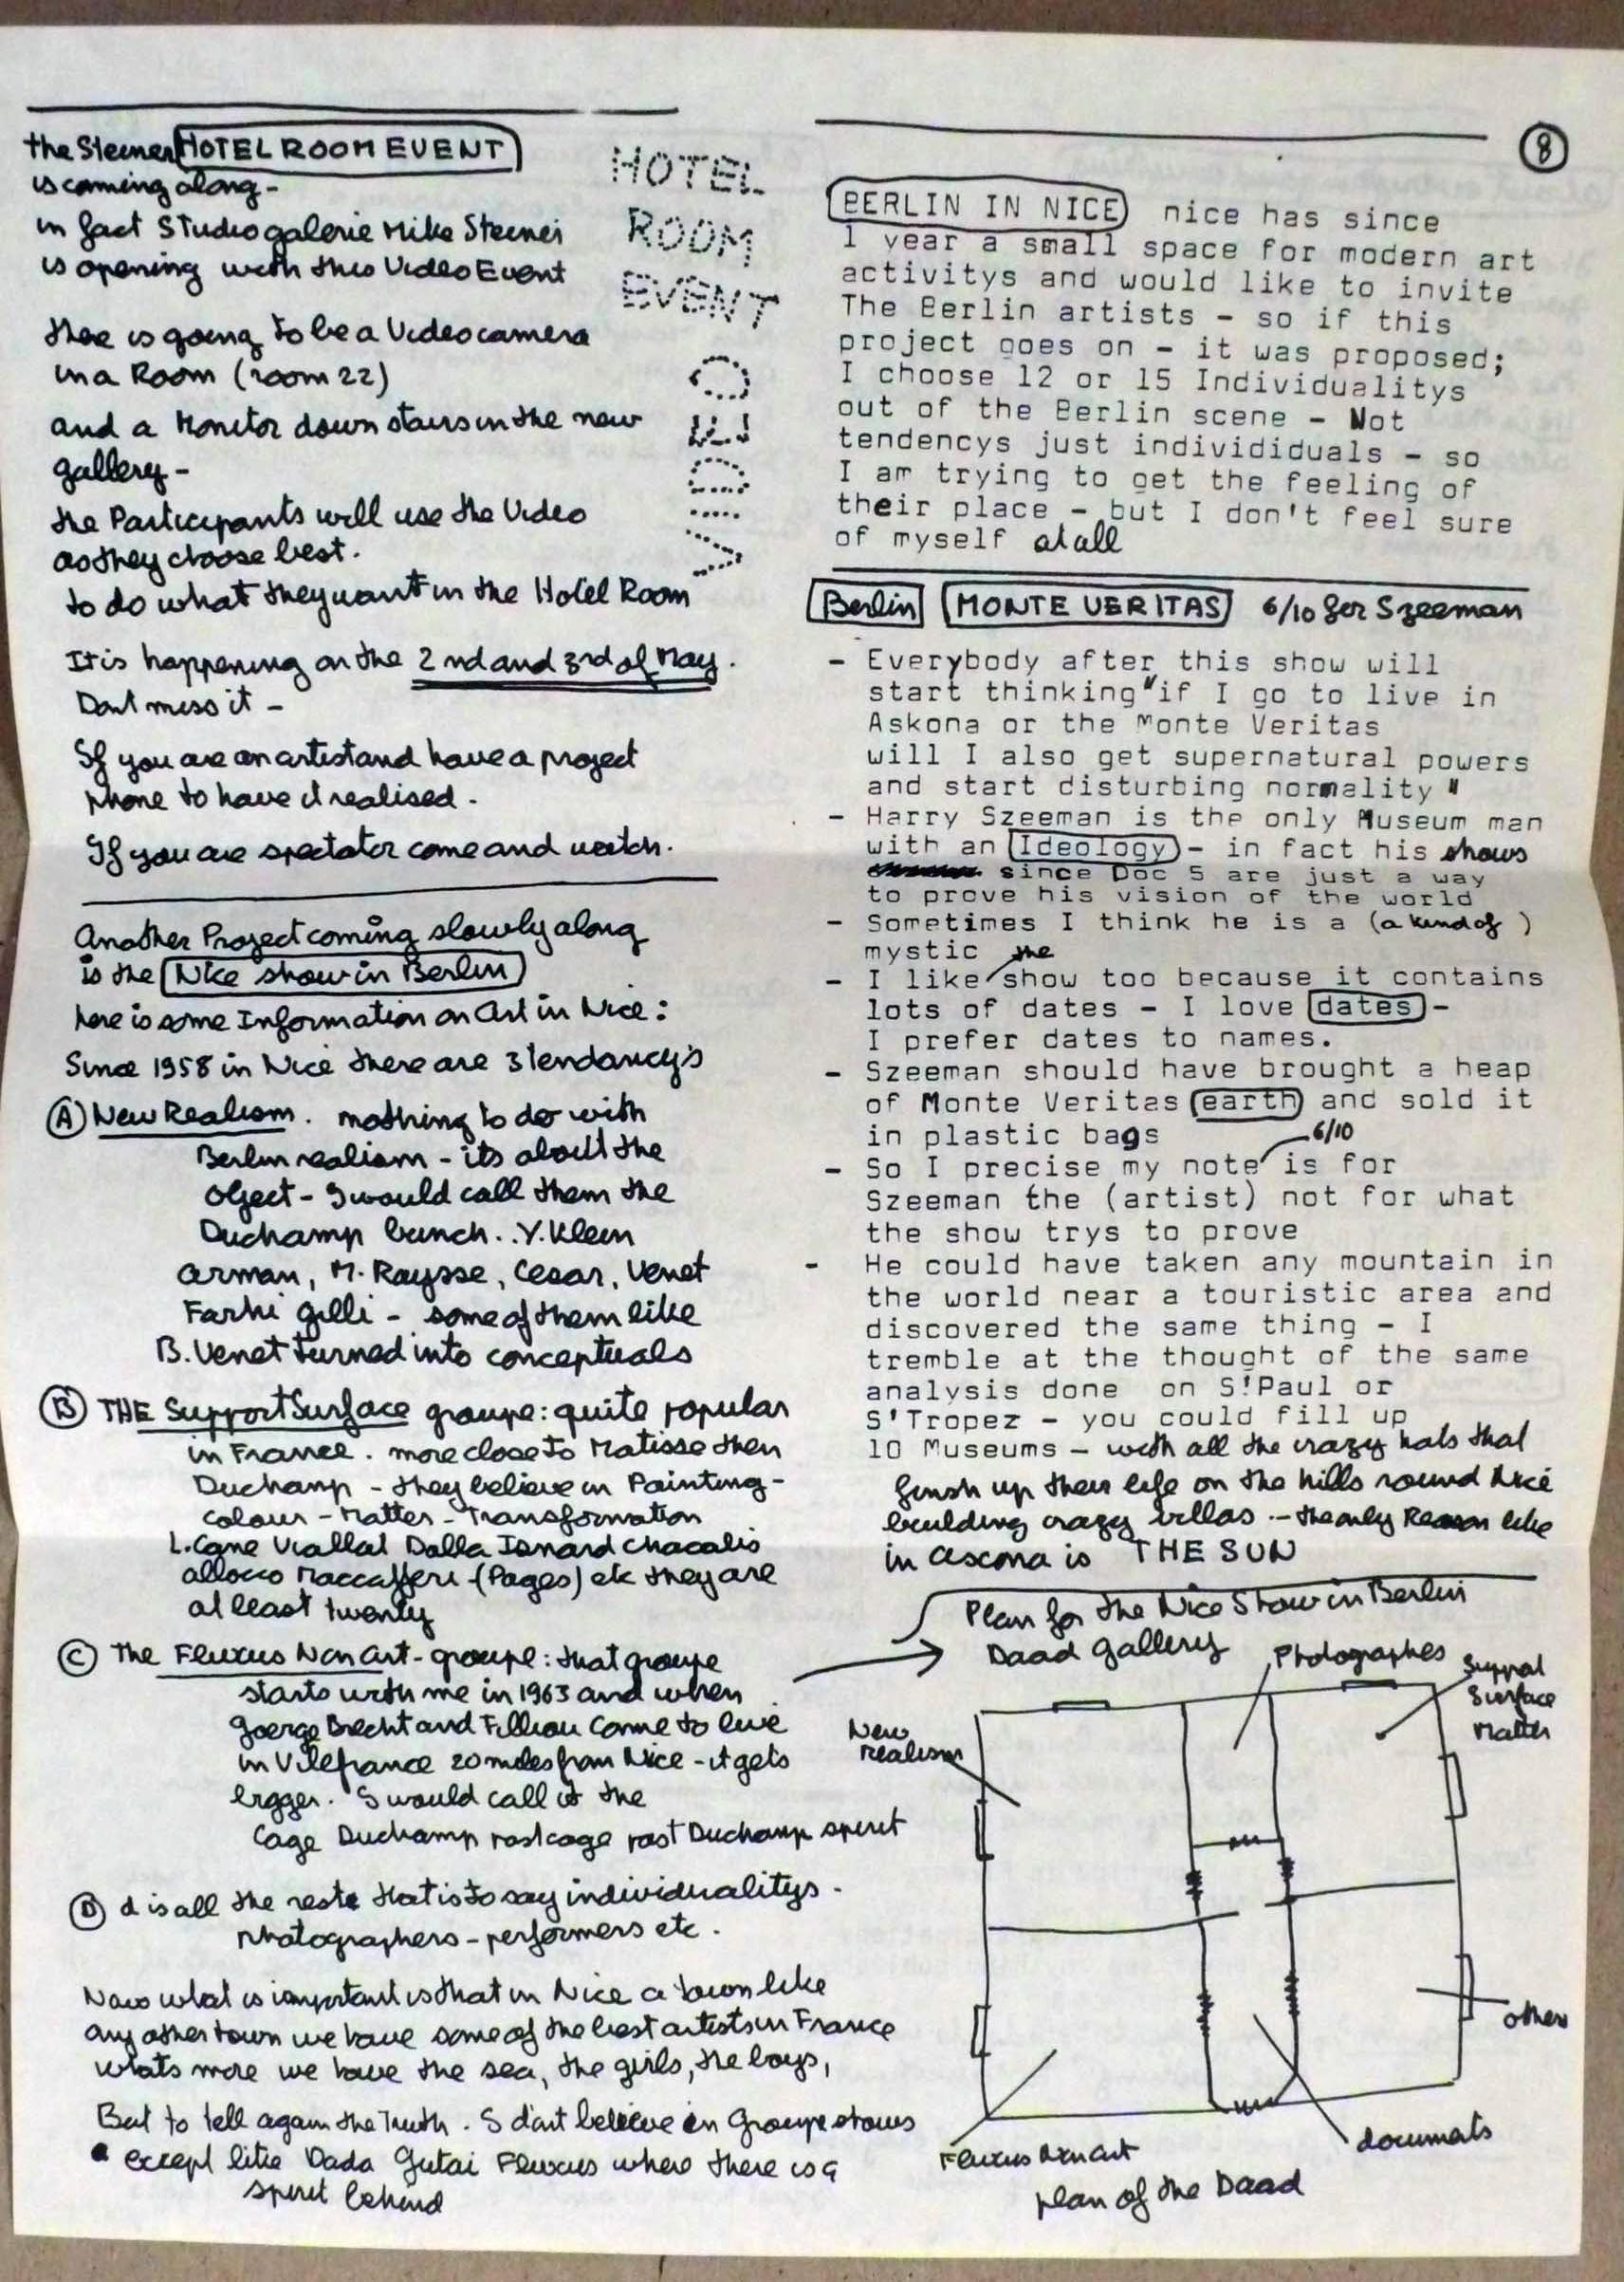 the Steiner HOTEL ROOM EVENT
is coming along -
in fact Studiogalerie Mike Steiner
is opening with this Video Event
there is going to be a Videocamera
in a Room (room 22)
and a Monitor down stairs in the new
gallery -
the Participants will use the Video
as they choose best.
to do what they want in the Hotel Room
It is happening on the 2nd and 3rd of May.
Dont miss it -
If you are an artist and have a project
phone to have it realised.
If you are spectator come and watch.
HOTEL
ROOM
EVENT
VIDEO
Another Project coming slowly along
is the Nice show in Berlin
here is some Information on Art in Nice:
Since 1958 in Nice there are 3 tendancy's
A New Realism. nothing to do with
Berlin realism - its about the
Object - I would call them the
Duchamp bunch.. Y. Klein
Arman, M. Raysse, Cesar, Venet
Farhi Gilli - some of them like
B. Venet turned into conceptuals
B THE Support Surface groupe: quite popular
in France. more close to Matisse then
Duchamp - they believe in Painting -
Colour - Matter - Transformation
L. Cane Viallat Dolla Isnard Chacalis
allocco Maccaferri - (Pages) etc they are
at least twenty
C The Fluxus Non Art - groupe: that groupe
starts with me in 1963 and when
George Brecht and Filliou come to live
in Vilefrance 20 miles from Nice - it gets
bigger. I would call it the
Cage Duchamp post cage post Duchamp spirit
D d is all the reste that is to say individualitys.
photographers - performers etc.
Now what is important is that in Nice a town like
any other town we have some of the best artists in France
whats more we have the sea, the girls, the boys,
But to tell again the Truth. I dont believe in Groupe shows
except like Dada Gutai Fluxus where there is a
spirit behind
8
BERLIN IN NICE nice has since
1 year a small space for modern art
activitys and would like to invite
The Berlin artists - so if this
project goes on - it was proposed;
I choose 12 or 15 Individualitys
out of the Berlin scene - Not
tendencys just individiduals - so
I am trying to get the feeling of
their place - but I don't feel sure
of myself at all
Berlin MONTE VERITAS 6/10 for Szeeman
- Everybody after this show will
start thinking "if I go to live in
Askona or the Monte Veritas
will I also get supernatural powers
and start disturbing normality"
- Harry Szeeman is the only Museum man
with an Ideology - in fact his shows
since Doc 5 are just a way
to prove his vision of the world
- Sometimes I think he is a (a kind of)
mystic
- I like the show too because it contains
lots of dates - I love dates -
I prefer dates to names.
- Szeeman should have brought a heap
of Monte Veritas earth and sold it
in plastic bags
- So I precise my note 6/10 is for
Szeeman the (artist) not for what
the show trys to prove
- He could have taken any mountain in
the world near a touristic area and
discovered the same thing - I
tremble at the thought of the same
analysis done on S'Paul or
S'Tropez - you could fill up
10 Museums - with all the crazy nats that
finish up their life on the hills round Nice
building crazy villas - the only Reason like
in ascona is THE SUN
Plan for the Nice Show in Berlin
Daad Gallery
Photographes
Support
Surface
Matter
New
Realism
others
documents
Fluxus Non art
plan of the Daad